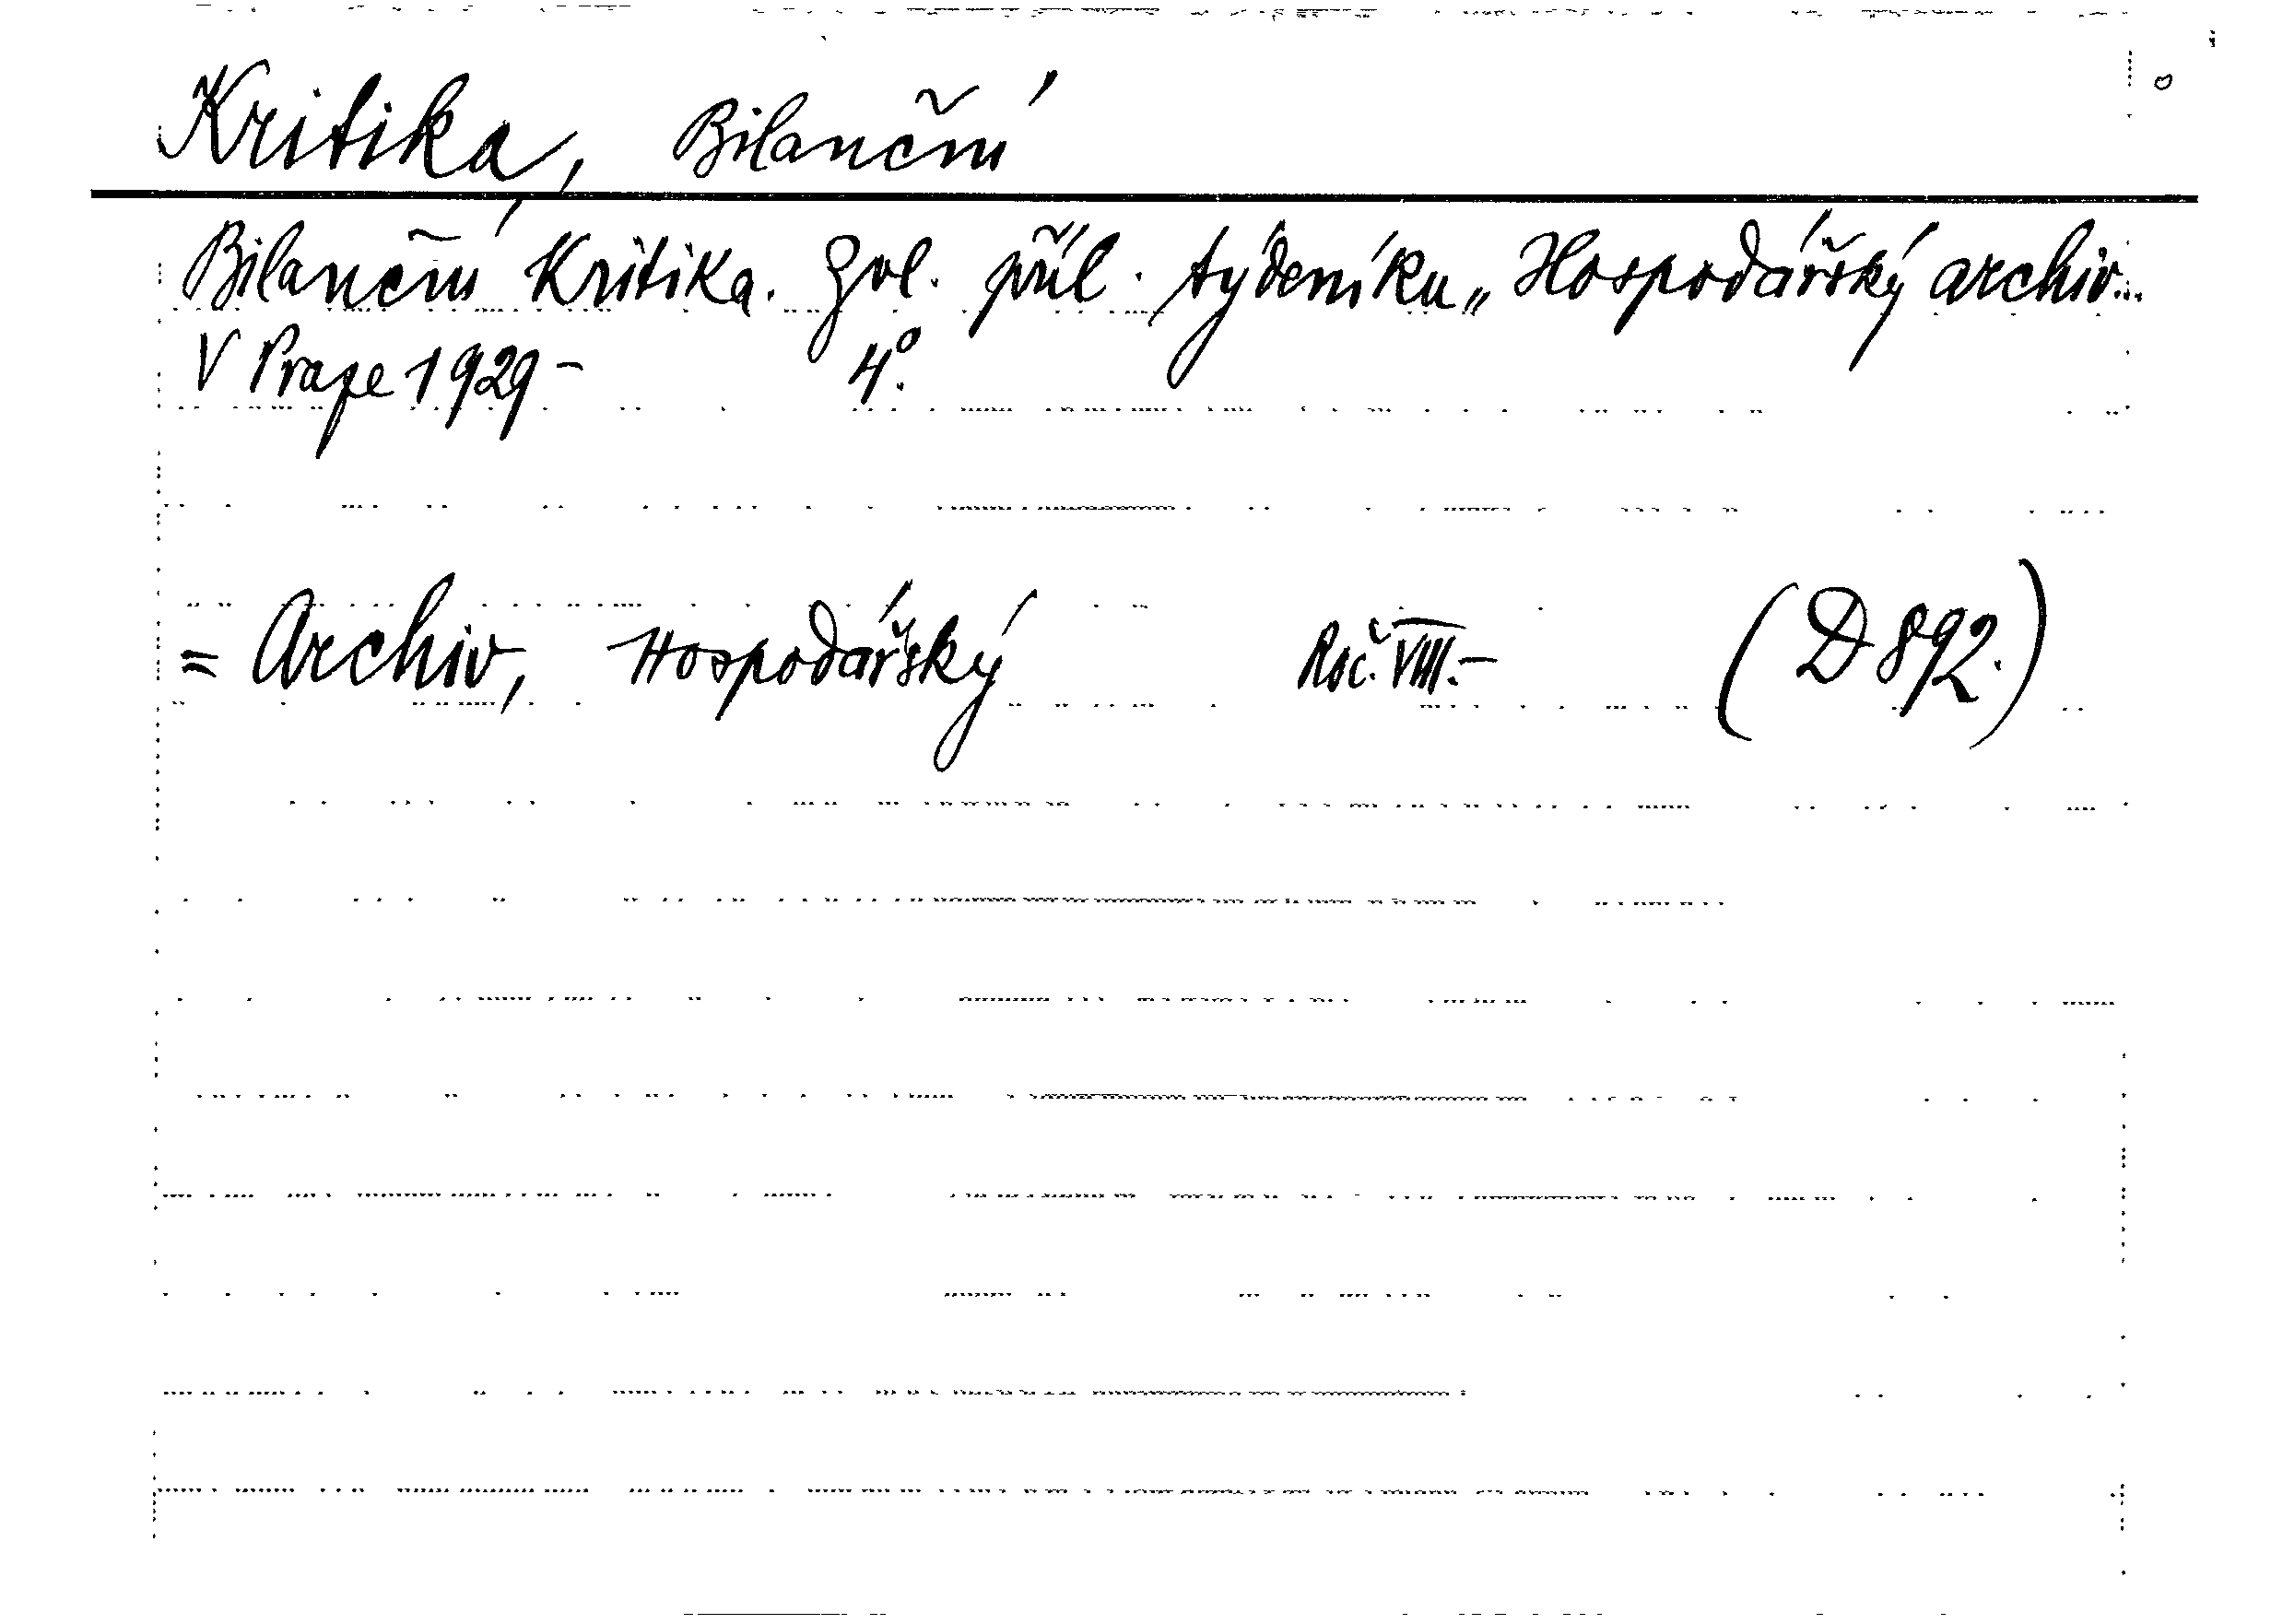 Kritika, Bilanční
Bilanční Kritika. Zvl. příl. týdeníku „Hospodářský archiv..."
V Praze 1929- 4°.
= Archiv, Hospodářský Roč. VIII.- (D 892.)